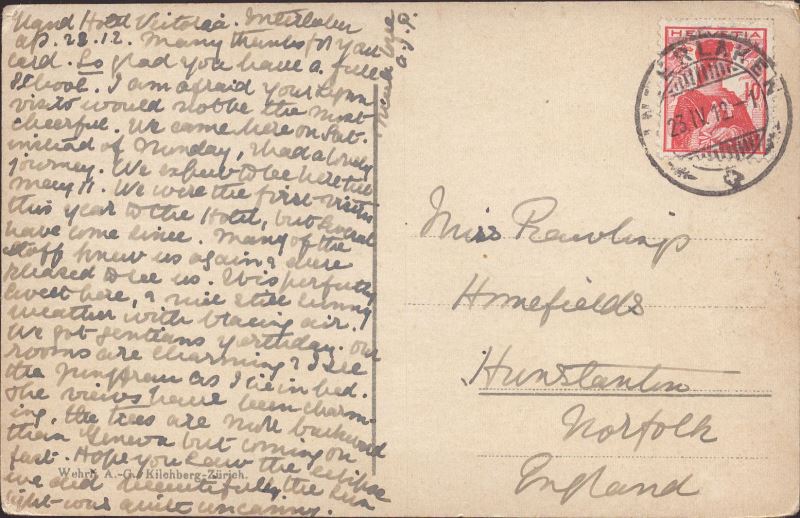 Grand Hotel Victoria. Interlaken
ap. 23.12. Many thanks for your
card. So glad you have a full
School. I am afraid your Lynn
visit would not be the most
cheerful. We came here on Sat.
instead of Monday, & had a lovely
journey. We expect to be here till
May 11. We were the first visitors
this year to the Hotel, but several
have come since. Many of the
staff knew us again & were
pleased to see us. It is perfectly
sweet here, & nice still sunny
weather with bracing air.
We got gentians yesterday. Our
rooms are charming & I see
the Jungfrau as I lie in bed.
The views have been charm-
ing, the trees are more backward
than Geneva but coming on
fast. Hope you saw the eclipse
we did beautifully, the
light was quite uncanny.
Much love
Wehrli A.-G., Kilchberg-Zürich.
HELVETIA
INTERLAKEN
23.IV.12.-10
Miss Rawlings
Homefields
Hunstanton
Norfolk
England